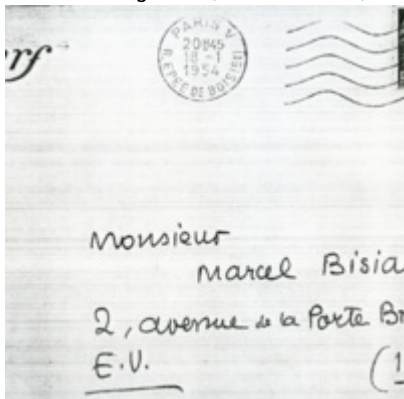 rf
PARIS V
20H45
18 - 1
1954
R. EPEE DE BOIS (5E)
Monsieur
Marcel Bisia
2, avenue de la Porte Br
E.V.
(1